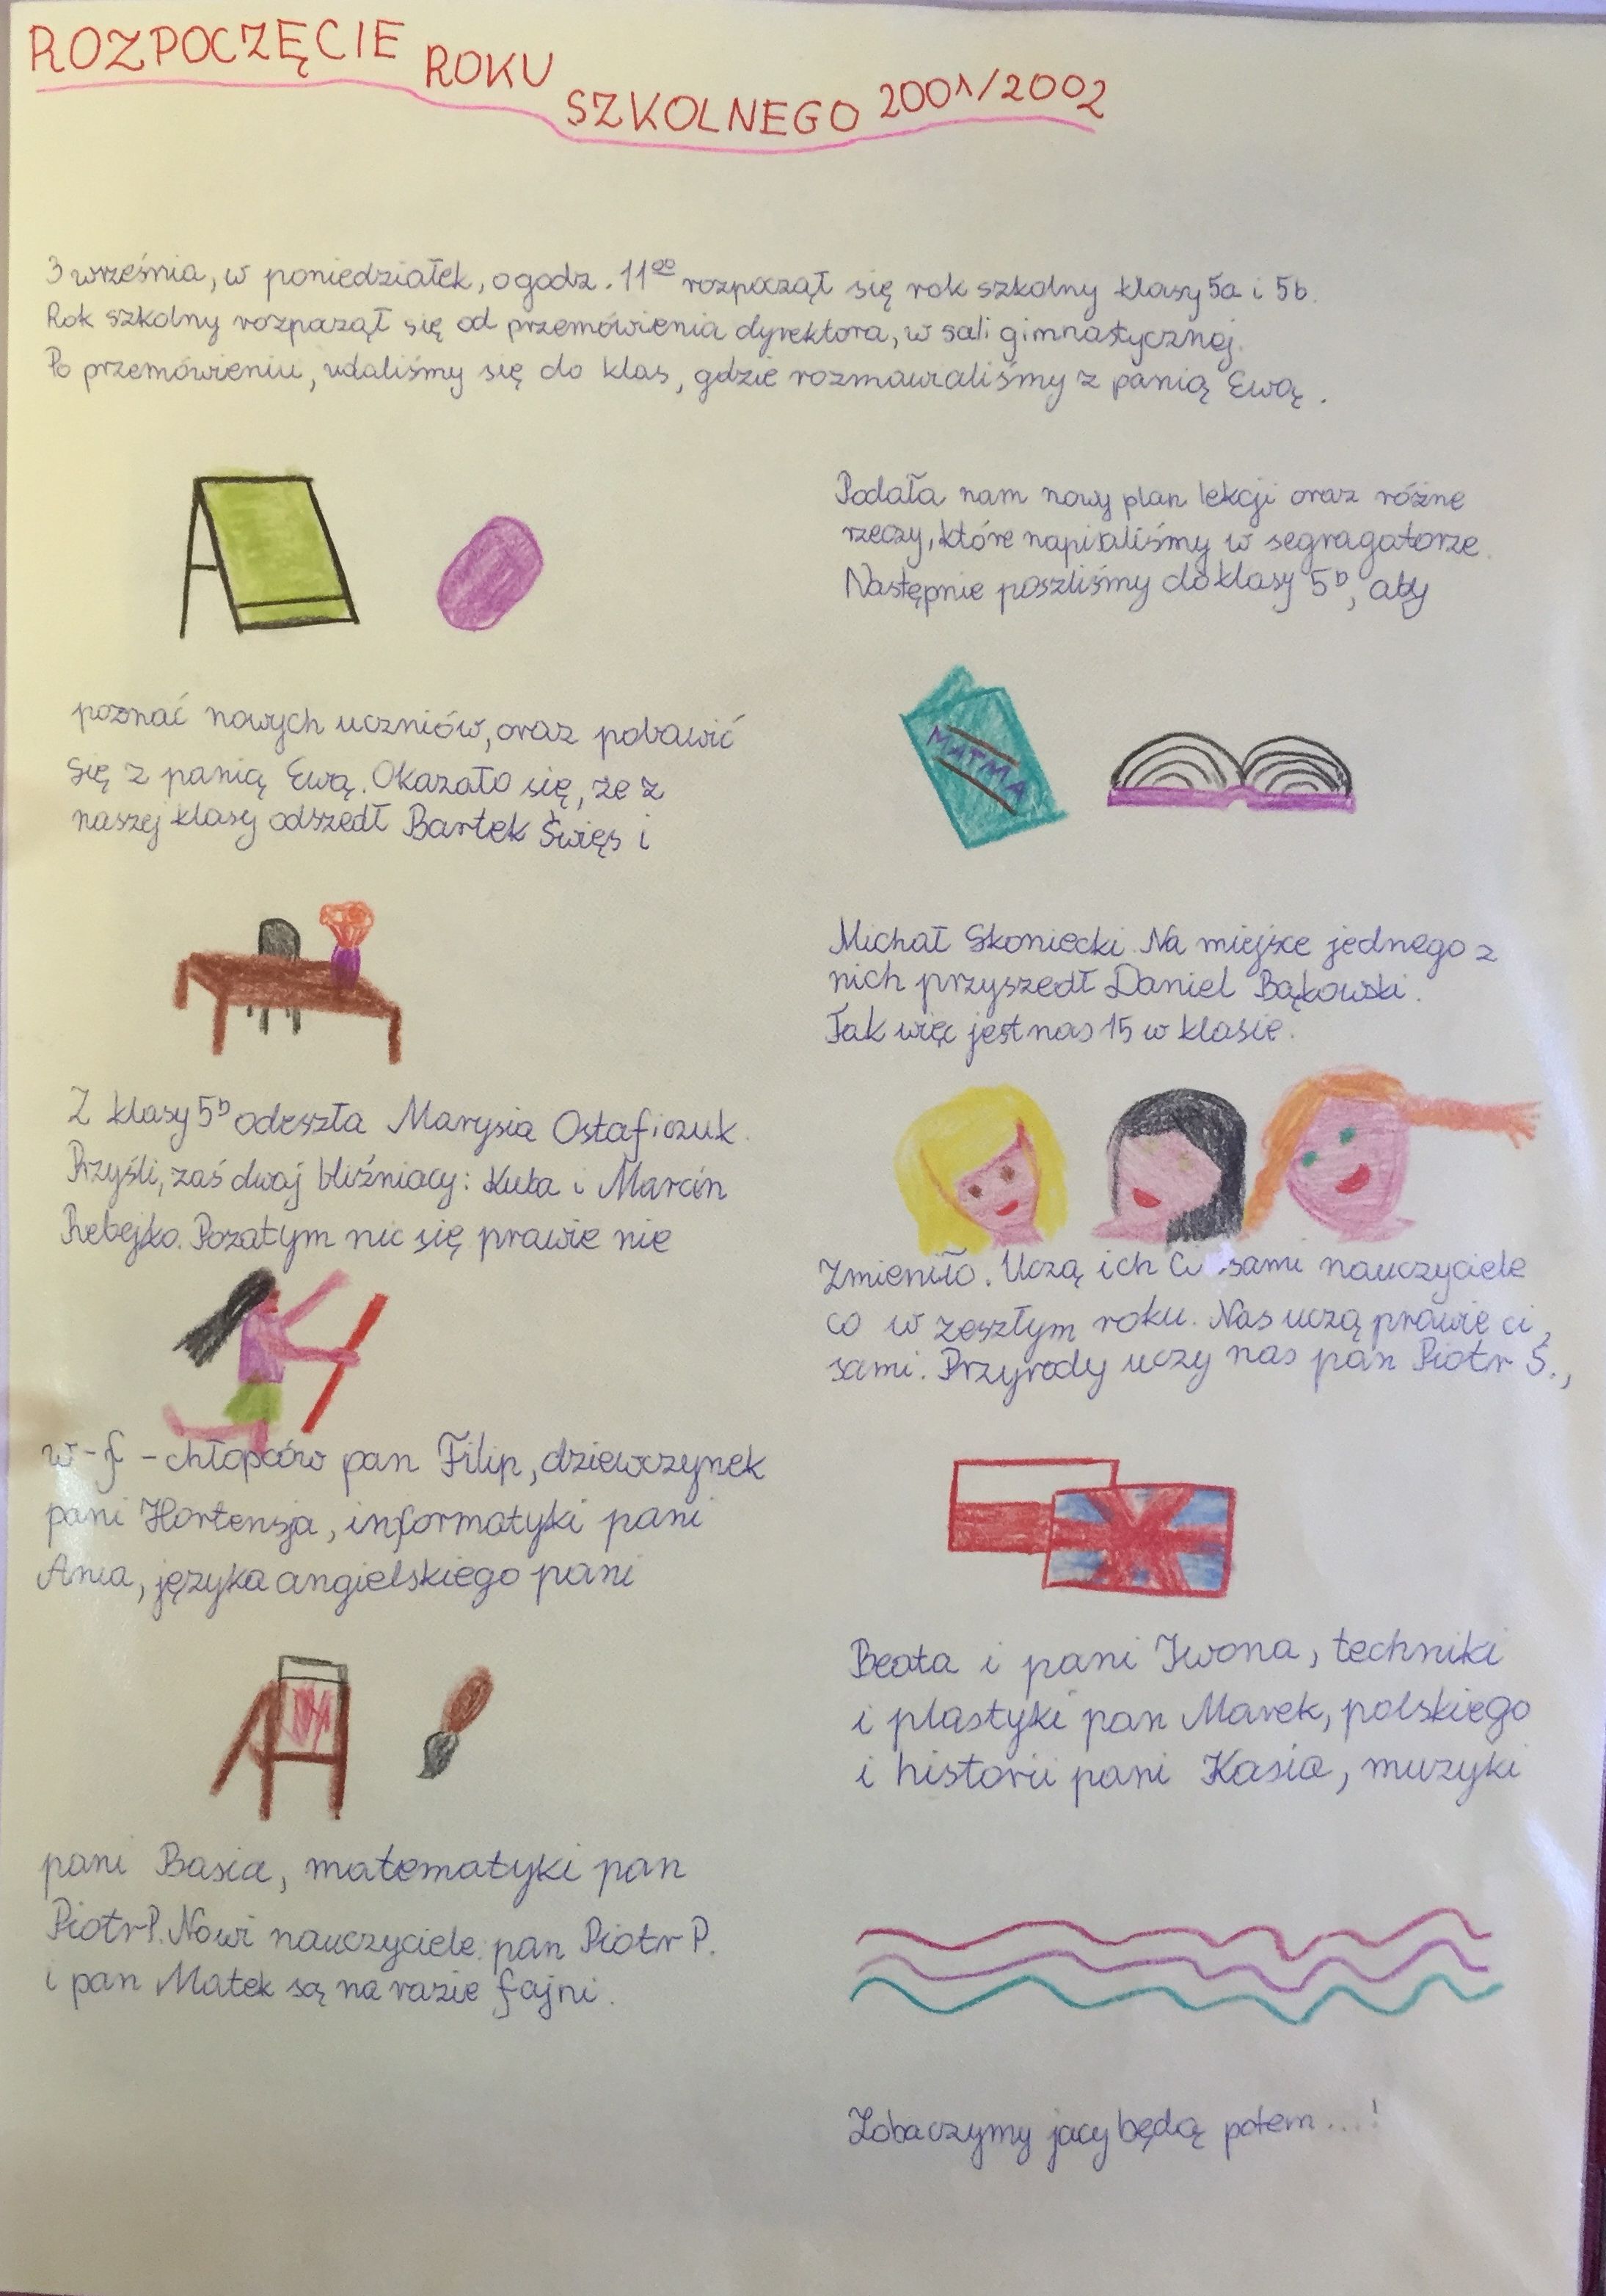 ROZPOCZĘCIE ROKU SZKOLNEGO 2001/2002
3 września, w poniedziałek, o godz. 11⁰⁰ rozpoczął się rok szkolny klasy 5a i 5b.
Rok szkolny rozpoczął się od przemówienia dyrektora, w sali gimnastycznej.
Po przemówieniu, udaliśmy się do klas, gdzie rozmawialiśmy z panią Ewą.
Podała nam nowy plan lekcji oraz różne
rzeczy, które napisaliśmy w segragatorze.
Następnie poszliśmy do klasy 5ᵇ, aby
poznać nowych uczniów, oraz pobawić
się z panią Ewą. Okazało się, że z
naszej klasy odszedł Bartek Święs i
MATMA
Michał Skoniecki. Na miejsce jednego z
nich przyszedł Daniel Bąkowski.
Tak więc jest nas 15 w klasie.
Z klasy 5ᵇ odeszła Marysia Ostaficzuk.
Przyśli, zaś dwaj bliźniacy: Kuba i Marcin
Rebejko. Pozatym nic się prawie nie
zmieniło. Uczą ich Ci sami nauczyciele
co w zeszłym roku. Nas uczą prawie ci
sami. Przyrody uczy nas pan Piotr Ś.,
w-f - chłopców pan Filip, dziewczynek
pani Hortensja, informatyki pani
Ania, języka angielskiego pani
Beata i pani Iwona, techniki
i plastyki pan Marek, polskiego
i historii pani Kasia, muzyki
pani Basia, matematyki pan
Piotr P. Nowi nauczyciele: pan Piotr P.
i pan Matek są na razie fajni.
Zobaczymy jacy będą potem...!